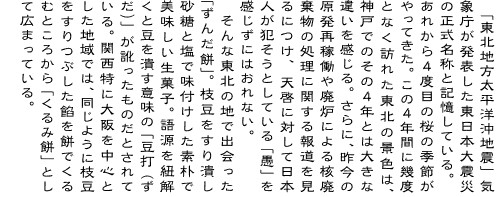 「東北地方太平洋沖地震」気
象庁が発表した東日本大震災
の正式名称と記憶している。
あれから４度目の桜の季節が
やってきた。この４年間に幾度
となく訪れた東北の景色は、
神戸でのその４年とは大きな
違いを感じる。さらに、昨今の
原発再稼働や廃炉による核廃
棄物の処理に関する報道を見
るにつけ、天啓に対して日本
人が犯そうとしている「愚」を
感じずにはおれない。
そんな東北の地で出会った
「ずんだ餅」。枝豆をすり潰し
砂糖と塩で味付けした素朴で
美味しい生菓子。語源を紐解
くと豆を潰す意味の「豆打（ず
だ）」が訛ったものだとされて
いる。関西特に大阪を中心と
した地域では、同じように枝豆
をすりつぶした餡を餅でくる
むところから「くるみ餅」とし
て広まっている。